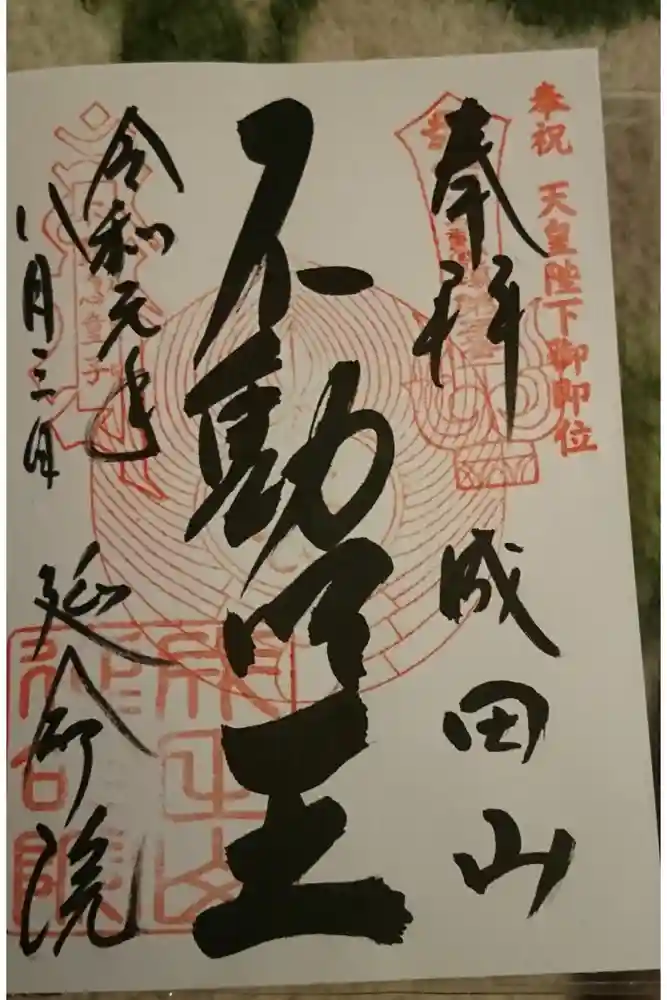 奉祝 天皇陛下御即位
奉拝 成田山
不動明王
令和元年
八月三日 延命院